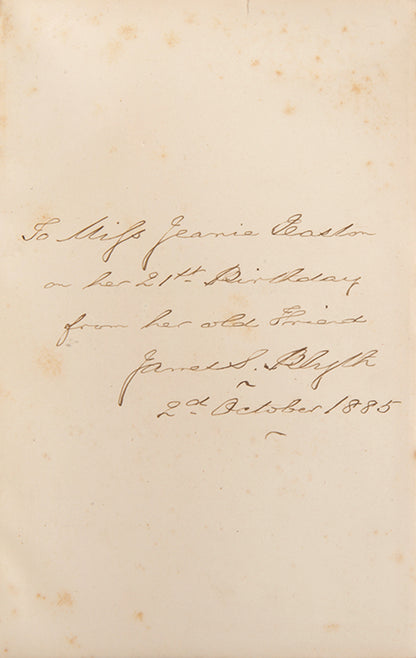 To Miſs Jeanie Easton
on her 21st Birthday
from her old Friend
Janet S. Blyth
2d October 1885